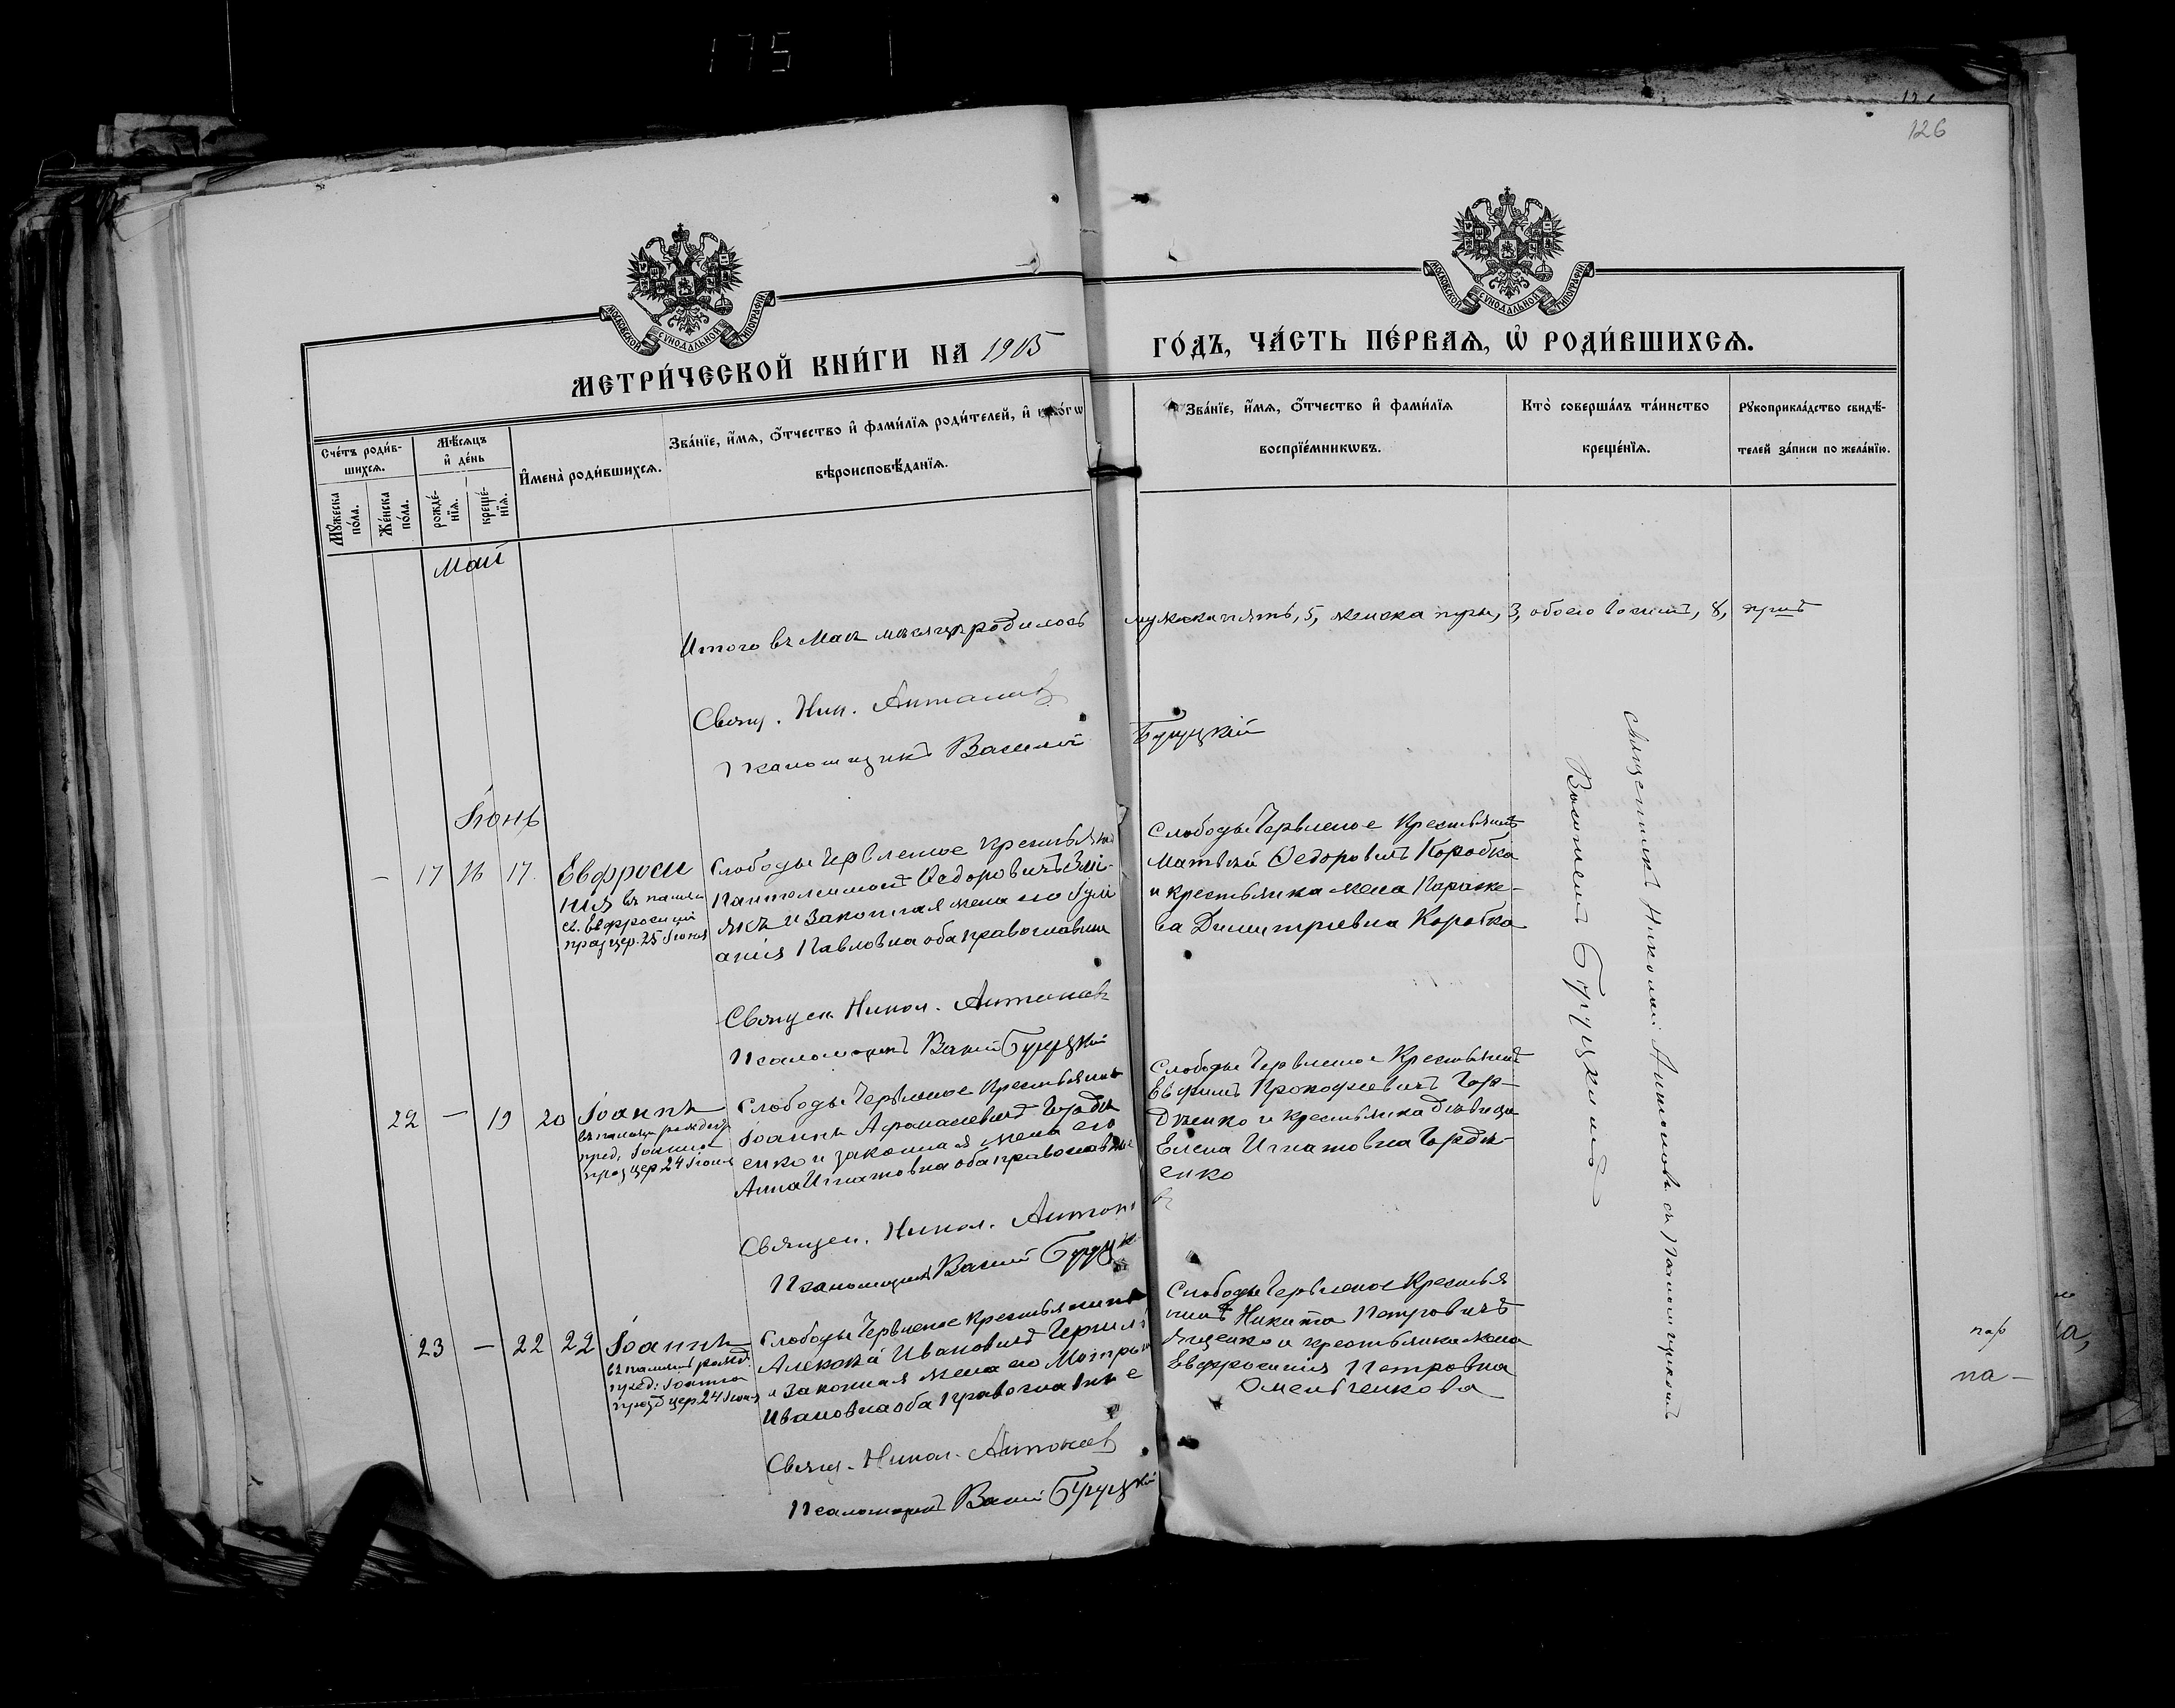 175
126
МОСКОВСКОЙ СѴНОДАЛЬНОЙ ТИПОГРАФІИ
МОСКОВСКОЙ СѴНОДАЛЬНОЙ ТИПОГРАФІИ
МЕТРИ́ЧЕСКОЙ КНИ́ГИ НА 1905 ГО́ДЪ, ЧА́СТЬ ПЕ́РВАѦ, Ѽ РОДИ́ВШИХСѦ.
Сче́тъ роди́в-
шихсѧ.
Мꙋ́жеска
по́ла.
Же́нска
по́ла.
Мѣ́сѧцъ
и҆ де́нь
рожде́-
нїѧ.
креще́-
нїѧ.
И҆мена̀ роди́вшихсѧ.
Зва́нїе, и҆́мѧ, ѻ҆́тчество и҆ фами́лїѧ роди́телей, и҆ како́гѡ
вѣроисповѣ́данїѧ.
Зва́нїе, и҆́мѧ, ѻ҆́тчество и҆ фами́лїѧ
воспрїе́мникѡвъ.
Кто̀ соверша́лъ та́инство
креще́нїѧ.
Рꙋкоприкла́дство свидѣ́-
телей за́писи по жела́нїю.
Май
Итого въ Маѣ мѣсяцѣ родилось мужска пять, 5, женска три, 3, обоего восемь, 8,
Свящ. Ник. Антоновъ
Псаломщикъ Василій Буруцкій
Іюнь
— 17 16 17
Евфроси
нія въ память
св. Евфросиніи
празд цер. 25 Іюня
Слободы Червленое крестьянинъ
Пантелеимонъ Ѳедоровичъ Змі-
якъ и законная жена его Іулі
анія Павловна оба православные
Слободы Червленое Крестьянинъ
Матвѣй Ѳедоровичъ Коробка
и крестьянка жена Параске-
ва Димитріевна Коробка
Священ. Никол. Антоновъ
Псаломщикъ Васил Буруцкій
22 — 19 20
Іоаннъ
въ память рожден
пред. Іоанна
празд цер 24 Іюня
Слободы Червленое Крестьянинъ
Іоаннъ Афанасіевичъ Гордѣ
енко и законная жена его
Анна Игнатовна оба православные
Слободы Червленое Крестьянинъ
Евфимъ Прокофіевичъ Гор-
дѣенко и крестьянка дѣвица
Елена Игнатовна Гордѣ-
енко
Священ. Никол. Антоновъ
Псаломщикъ Васил Буруцк
23 — 22 22
Іоаннъ
въ память рожд.
пред: Іоанна
празд цер 24 Іюня
Слободы Червленое крестьянинъ
Алексѣй Ивановичъ
и законная жена его Матрона
Ивановна оба православные
Слободы Червленое Крестья
нинъ Никита Петровичъ
Ященко и крестьянка жена
Евфросинія Петровна
Омельченкова
Свящ. Никол. Антоновъ
Псаломщикъ Васил Буруцкій
Священникъ Николай Антоновъ съ Псаломщикомъ
Василіемъ Буруцкимъ
на-